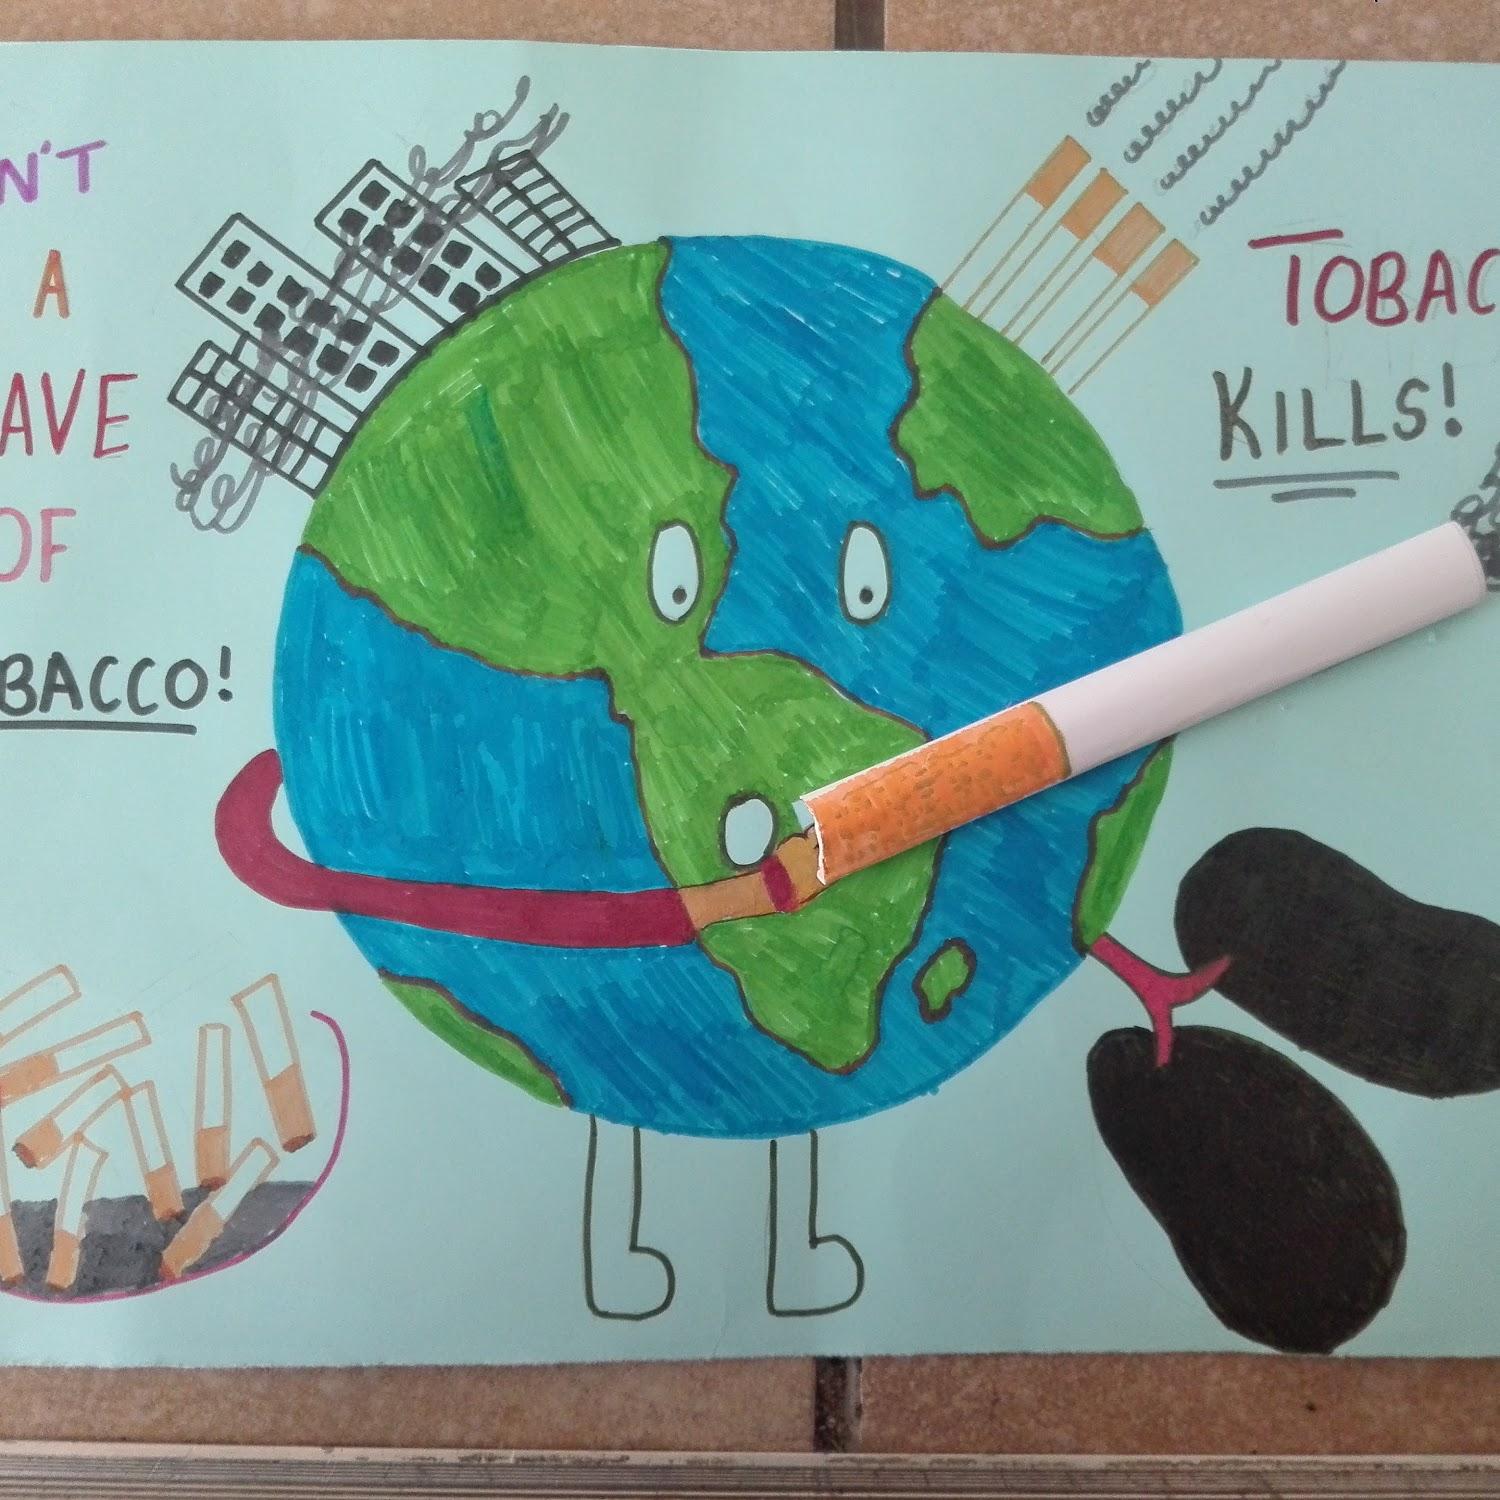 N'T
A
AVE
OF
BACCO!
TOBAC
KILLS!